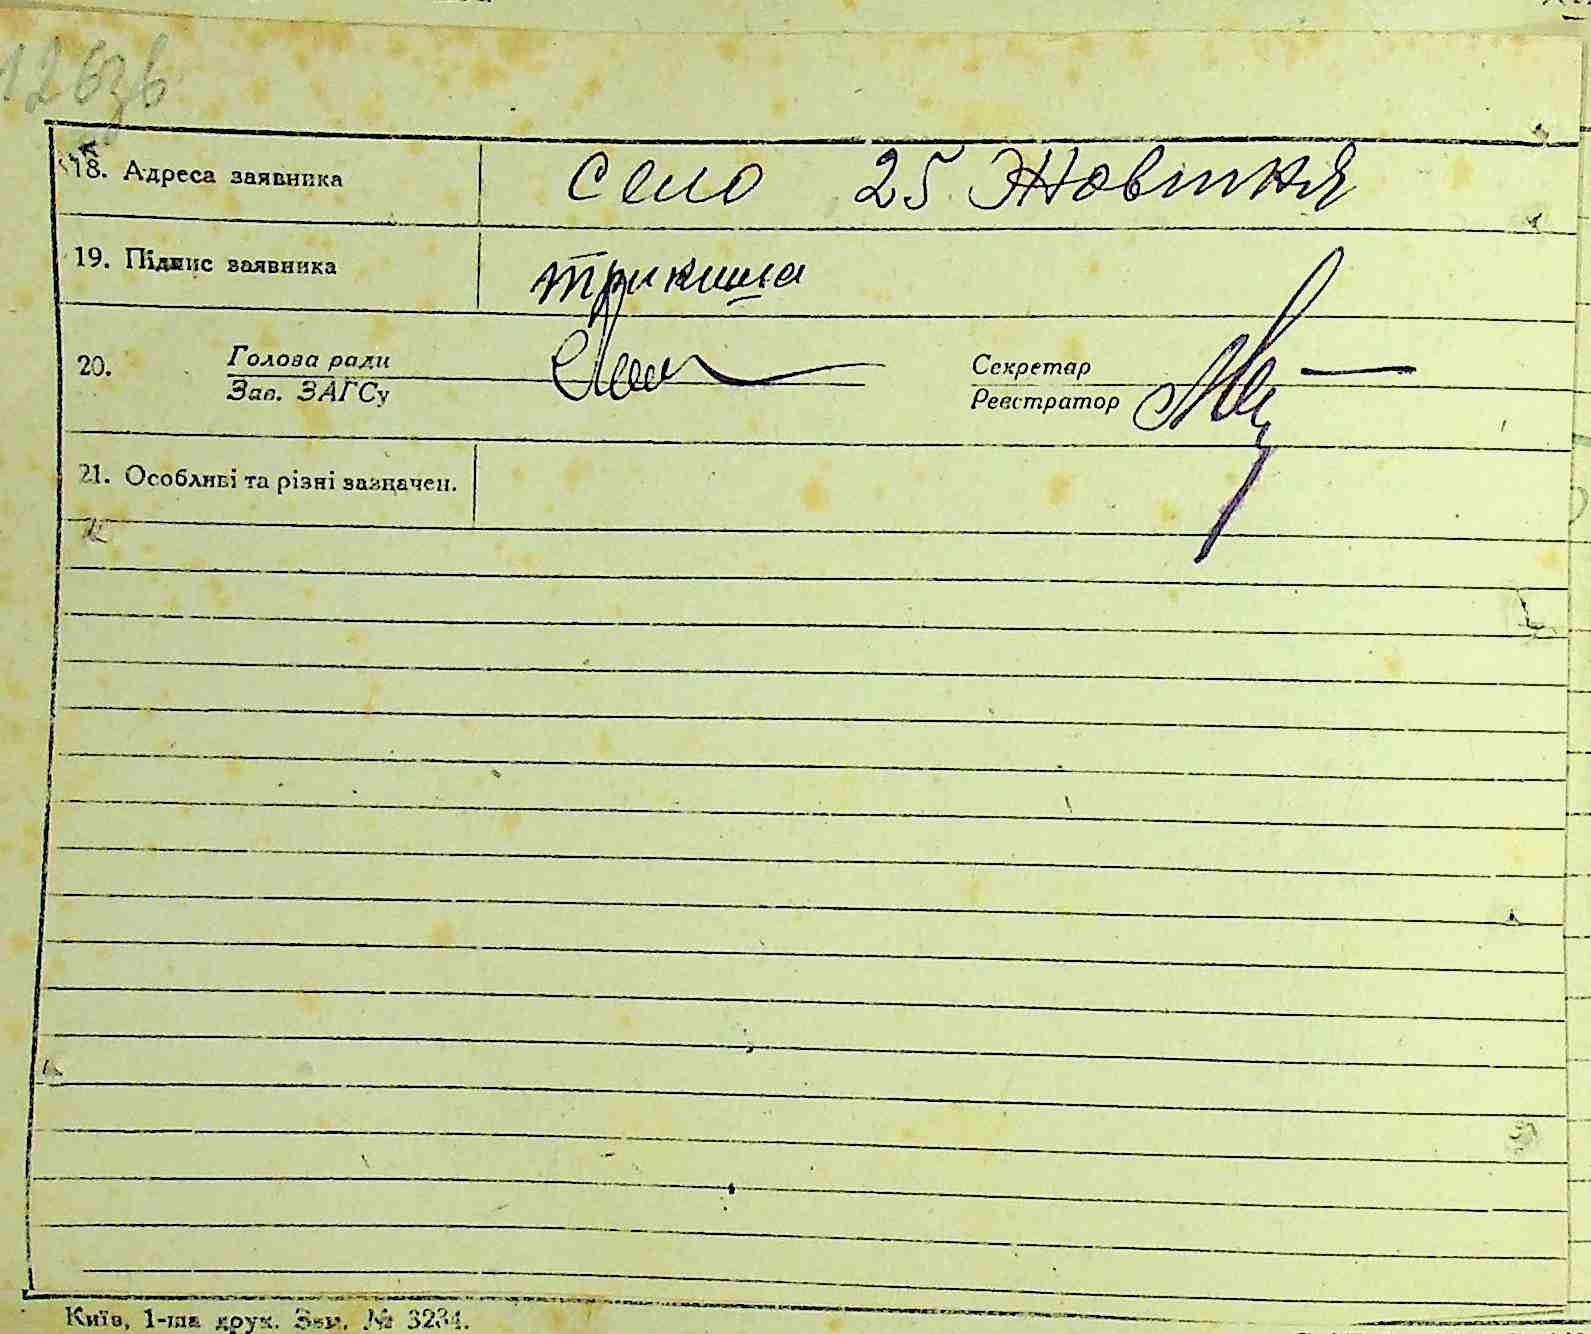 126зв
18. Адреса заявника село 25 Жовтня
19. Підпис заявника Трикиша
20. Голова ради Секретар
Зав. ЗАГСу Реєстратор
21. Особливі та різні зазначен.
Київ, 1-ша друк. Зам. № 3234.